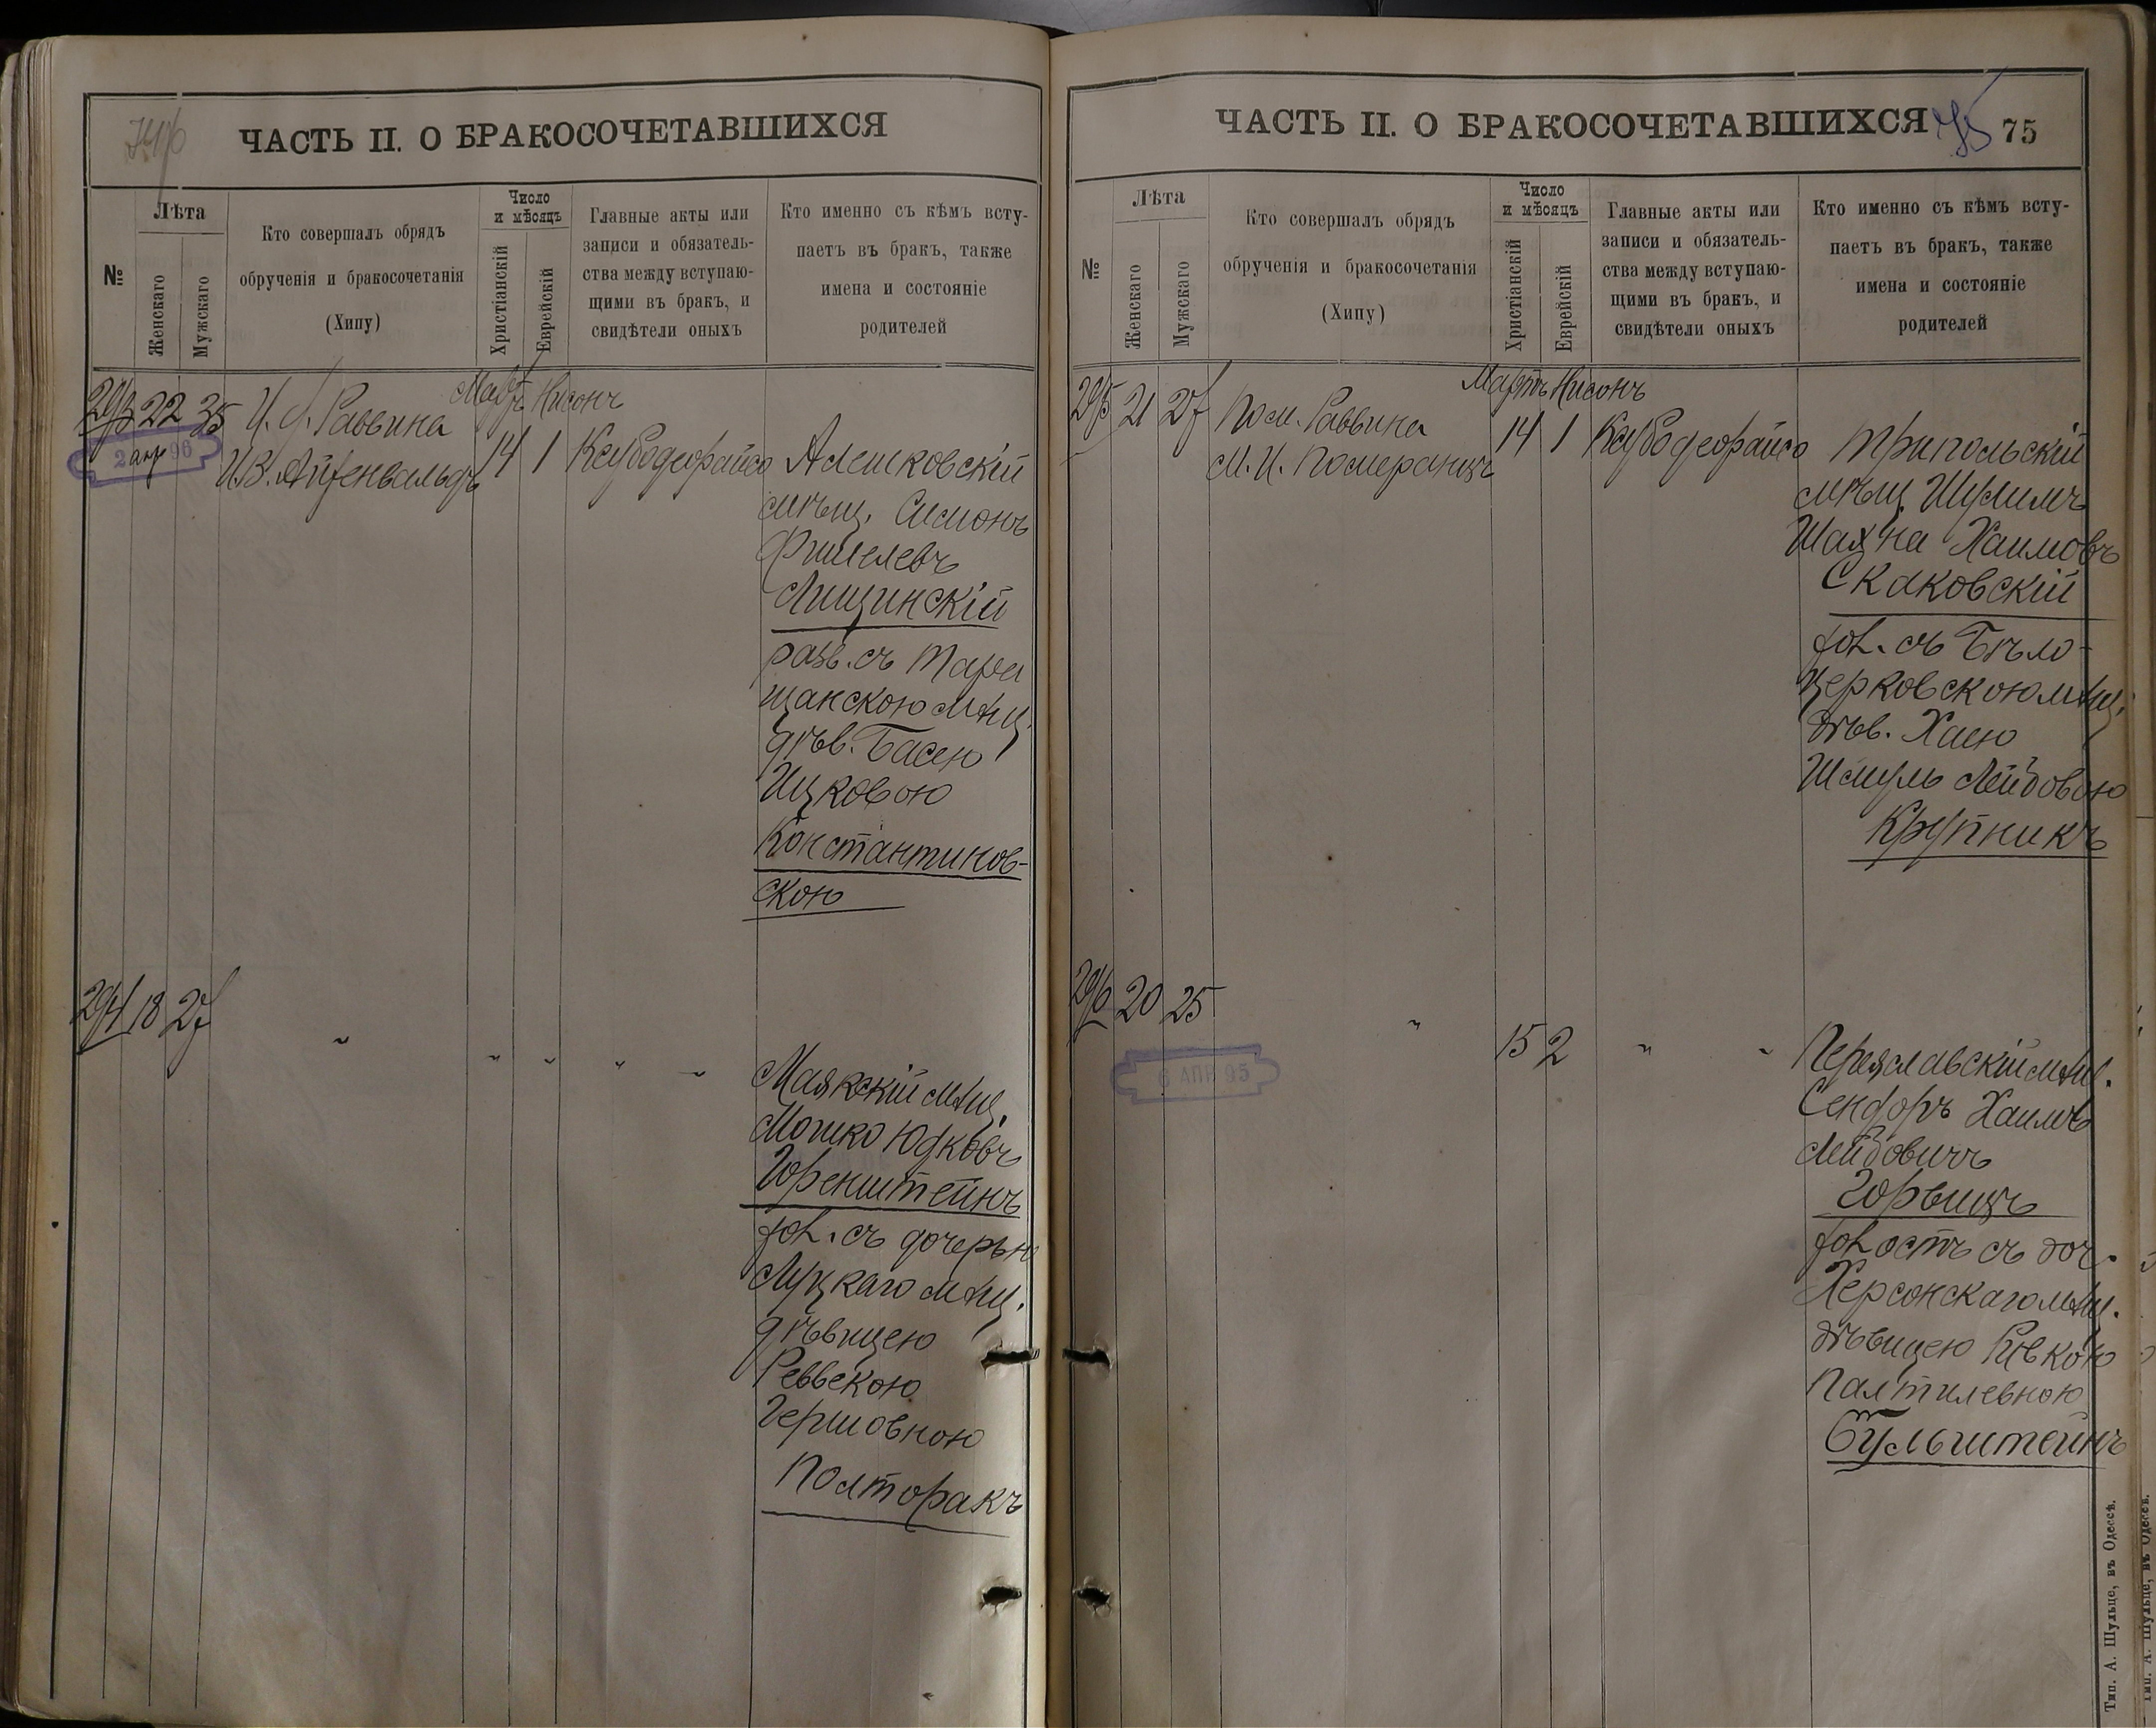 ЧАСТЬ II. О БРАКОСОЧЕТАВШИХСЯ
№
Лѣта
Женскаго
Мужскаго
Кто совершалъ обрядъ
обрученія и бракосочетанія
(Хипу)
Число
и мѣсяцъ
Христіанскій
Еврейскій
Главные акты или
записи и обязатель-
ства между вступаю-
щими въ бракъ, и
свидѣтели оныхъ
Кто именно съ кѣмъ всту-
паетъ въ бракъ, также
имена и состояніе
родителей
293 22 35 И. д. Раввина
Мартъ Нисонъ
14 1 Ксубодеорайсо
Алешковскій
мѣщ. Симонъ
Фишелевъ
Лищинскій
разв. съ Тара
щанскою мѣщ.
дѣв. Басею
Ицковою
Константинов-
скою
294 18 27
" " " " "
Маякскій мѣщ.
Мошко Юдковъ
Горенштейнъ
хол. съ дочерью
Луцкаго мѣщ.
дѣвицею
Реввекою
Гершовною
Полторакъ
ЧАСТЬ II. О БРАКОСОЧЕТАВШИХСЯ
75
75
№
Лѣта
Женскаго
Мужскаго
Кто совершалъ обрядъ
обрученія и бракосочетанія
(Хипу)
Число
и мѣсяцъ
Христіанскій
Еврейскій
Главные акты или
записи и обязатель-
ства между вступаю-
щими въ бракъ, и
свидѣтели оныхъ
Кто именно съ кѣмъ всту-
паетъ въ бракъ, также
имена и состояніе
родителей
295 21 27 Пом. Раввина
М. И. Померанцъ
Мартъ Нисонъ
14 1 Ксубодеорайсо
Трипольскій
мѣщ. Шулимъ
Шахна Хаимовъ
Скаковскій
хол. съ Бѣло-
церковскою мѣщ.
дѣв. Хаею
Шмуль Лейбовою
Крупникъ
296 20 25
" 15 2 " "
6 АПР 95
Переяславскій мѣщ.
Сендоръ Хаимъ
Лейбовичъ
Горвицъ
холостъ съ доч.
Херсонскаго мѣщ.
дѣвицею Ривкою
Палтилевною
Бульштейнъ
Тип. А. Шульце, въ Одессѣ.